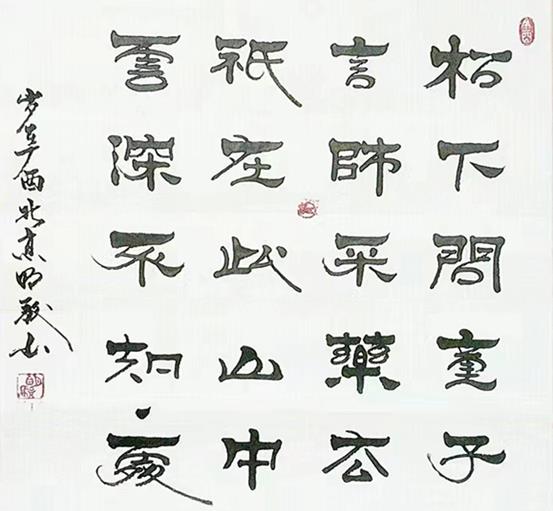 松下問童子
言師采藥去
祇在此山中
雲深不知處
岁在丁酉北京明